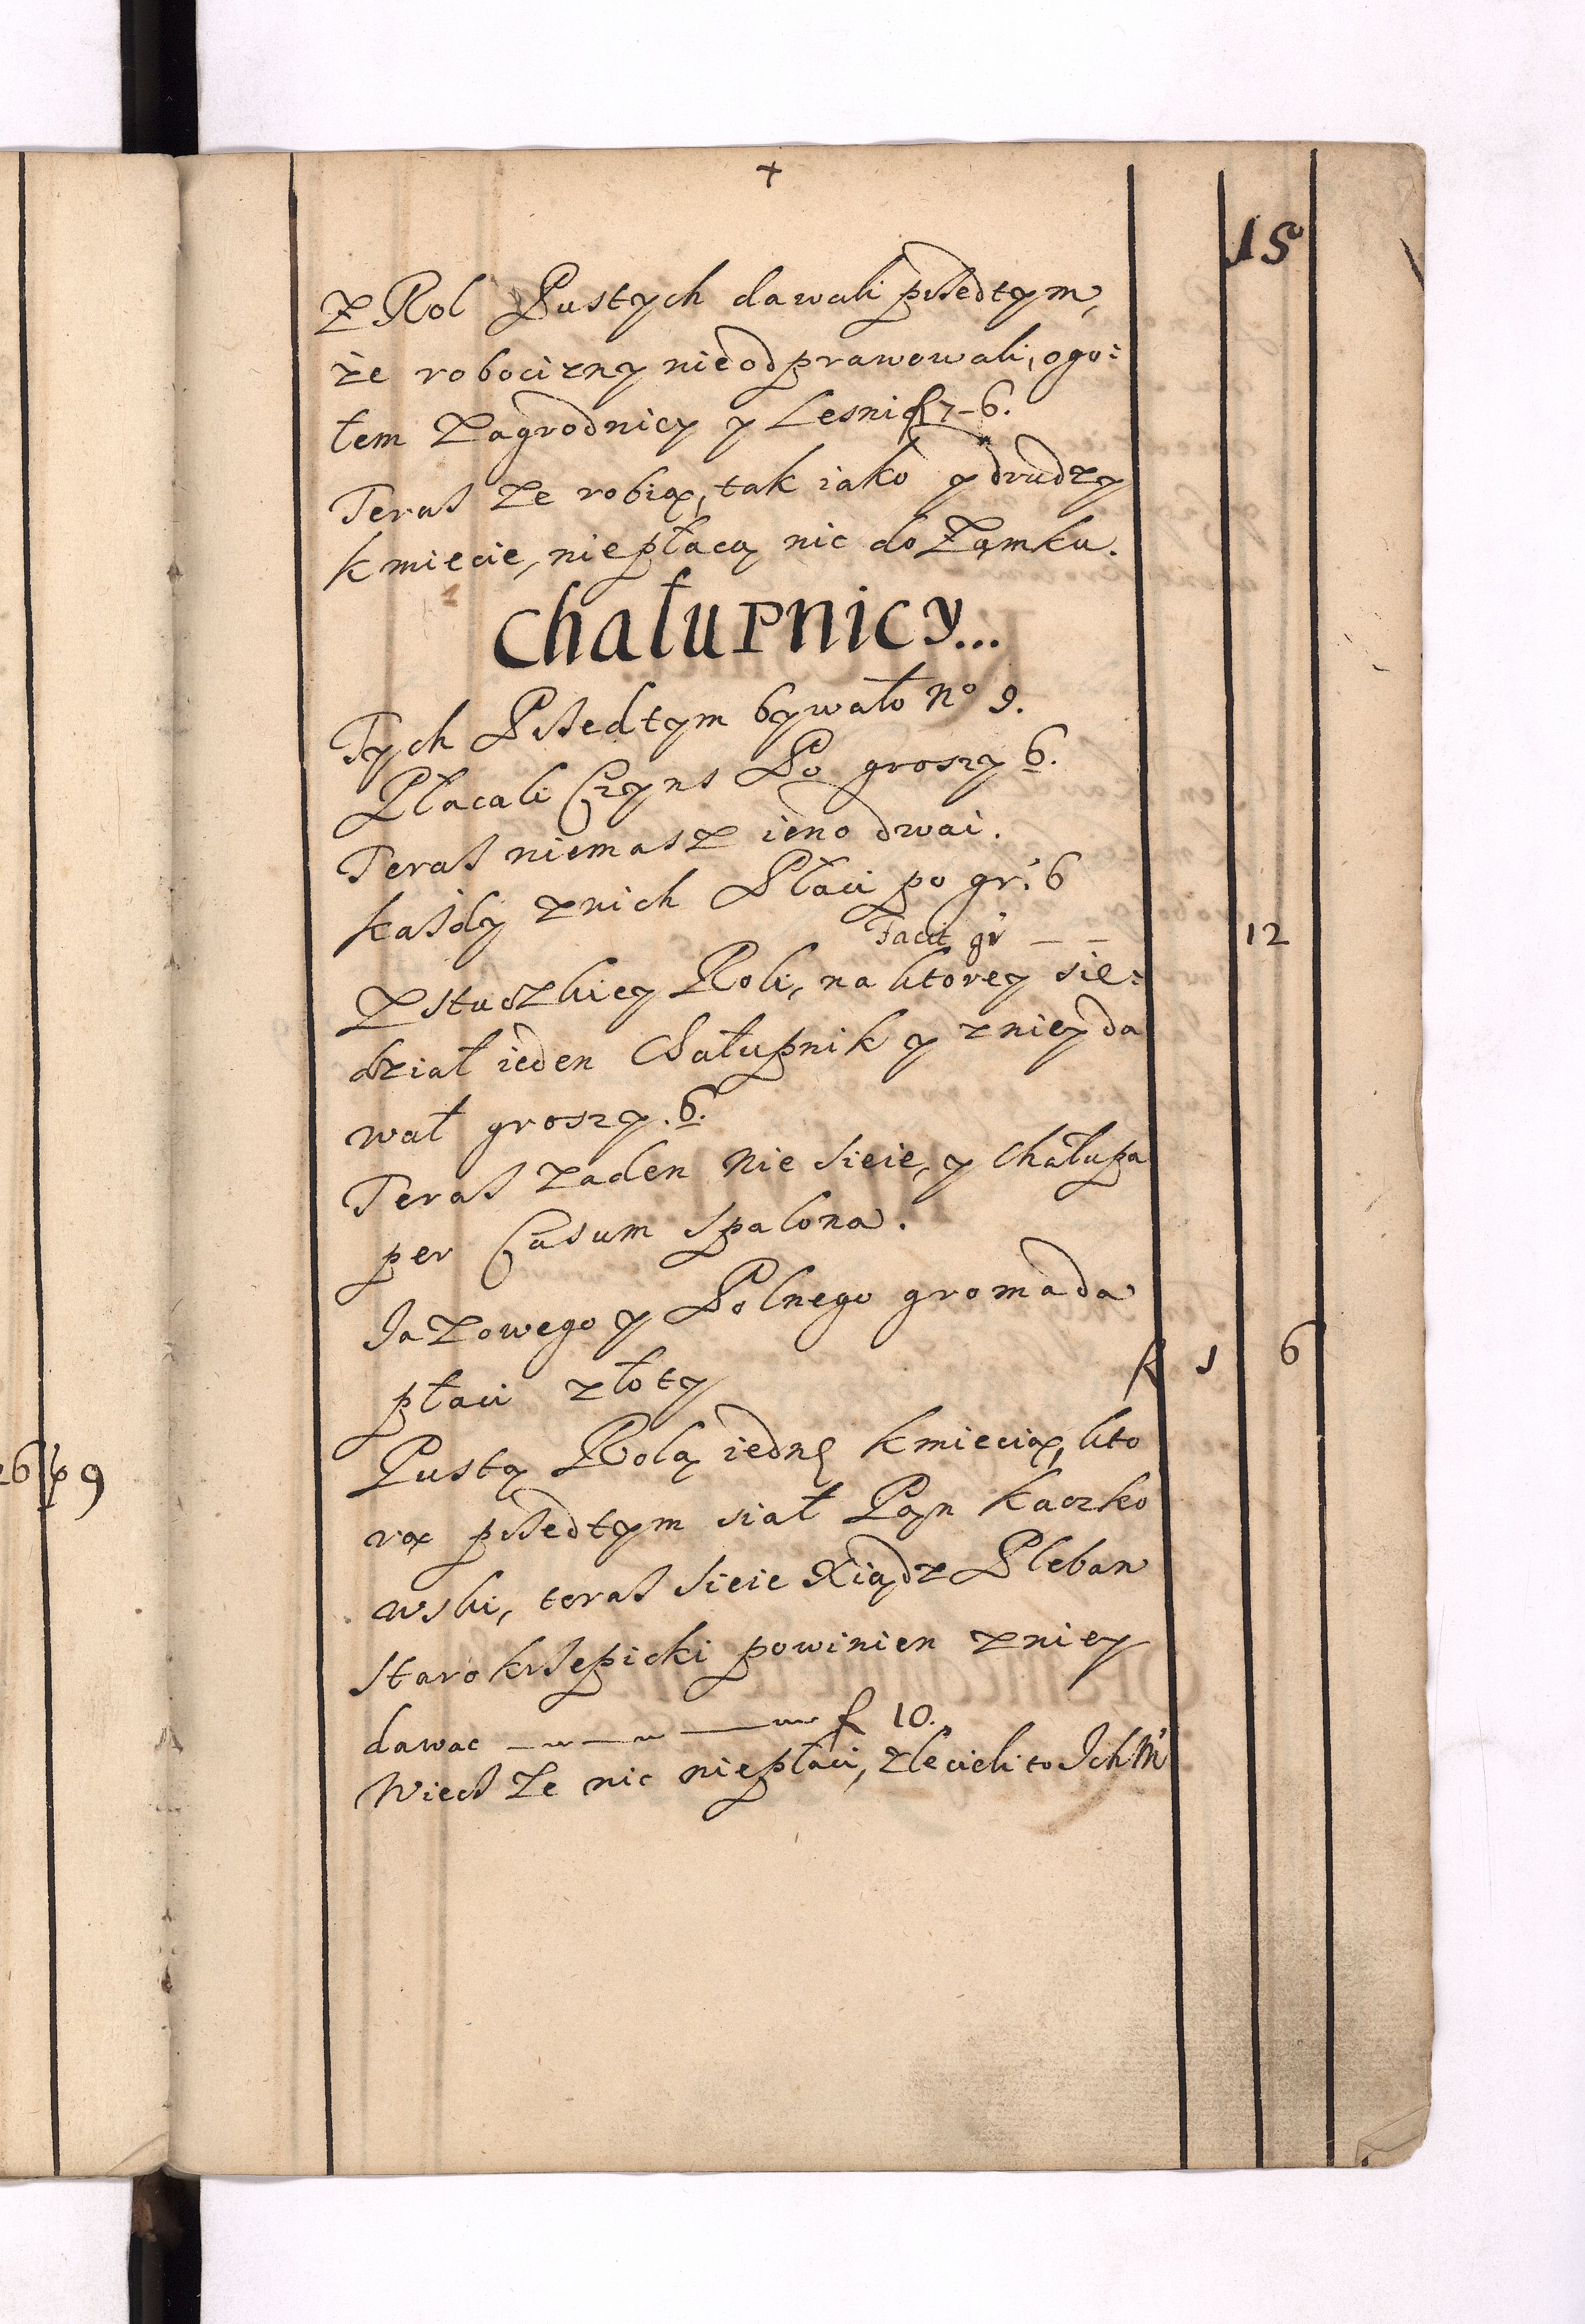 +
15
Z Rol Pustych dawali pßedtym,
że robocizny nieodprawowali, ogo:
łem Zagrodnicy y Lesni f 7-6.
Teraß Ze robią, tak iako y drudzy
kmiecie, niepłacą nic do Zamku.
Chałupnicy...
Tych Pßedtym bywało No 9.
Płacali Czyns Po groszy 6.
Teraß niemasz ieno dwai.
każdy znich Płaci po gr: 6
Facit gr — — 12
Z Roli, na ktorey sie:
dział ieden Chałupnik y zniey da
wał groszy. 6.
Teraß zaden nie sieie, y Chałupa
per Casum spalona.
Jazowego y Polnego gromada
płaci złoty f 1 6
Pustą Rolą iednę kmiecią, kto
rą pßedtym siał Pan Kaczko
wski, teraß sieie Xiądz Pleban
Starokrßepicki powinien zniey
dawac — — — f 10.
Wiecß Ze nic niepłaci, zlecieli to Ich M
26 9